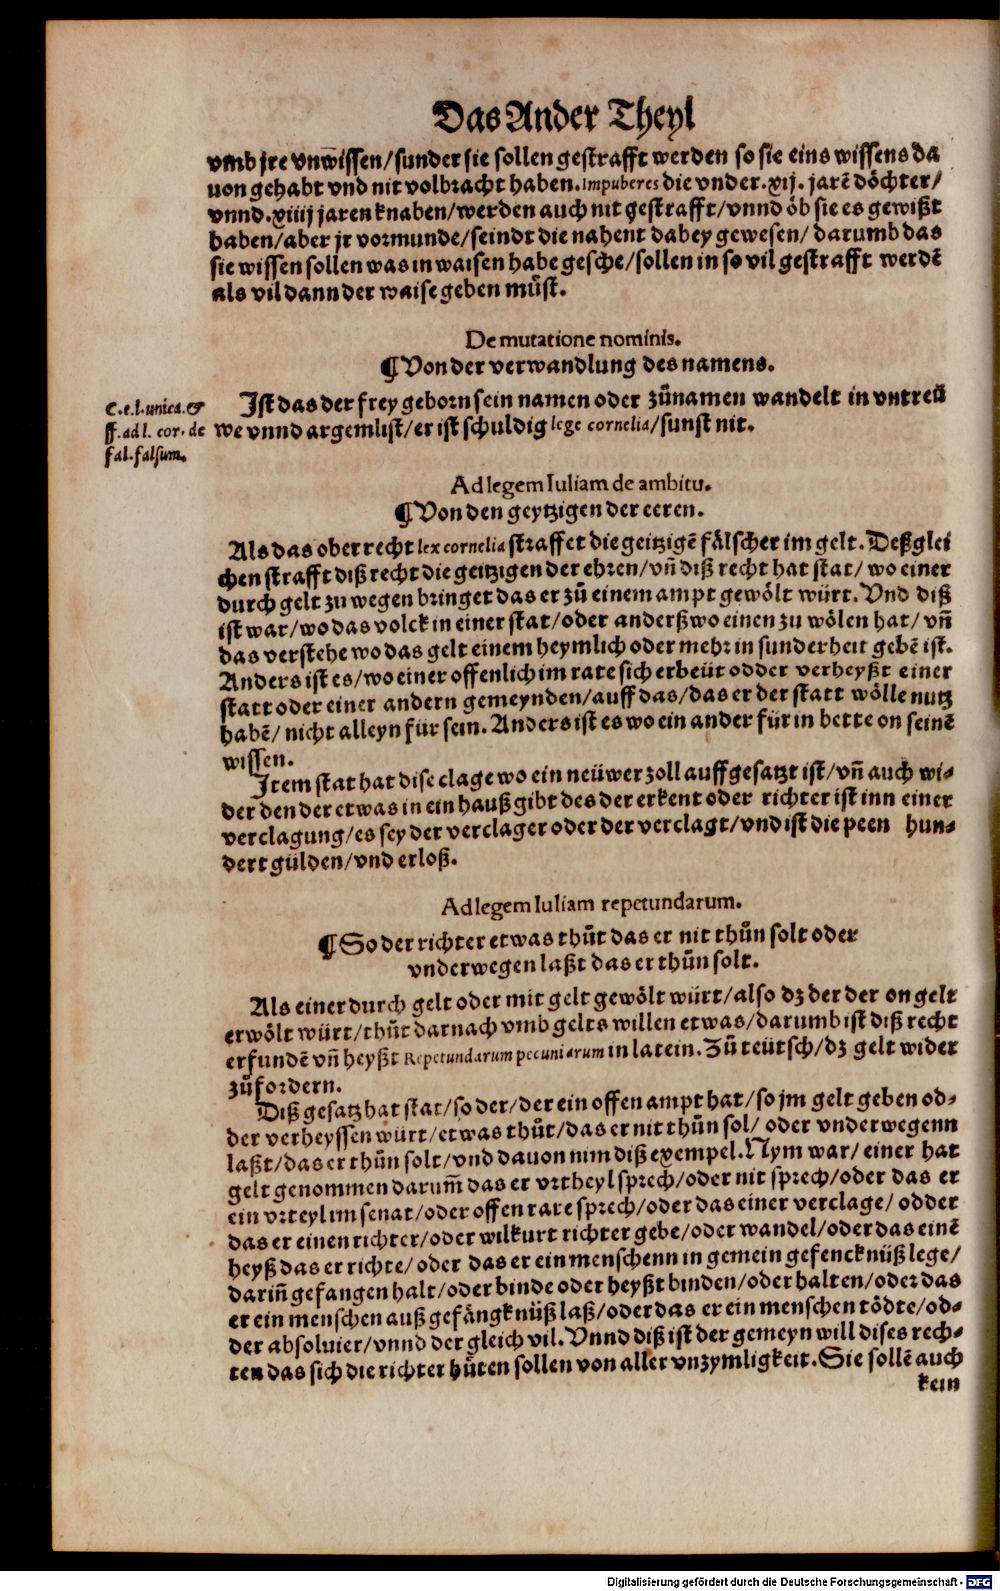 Das Ander Theyl
vmb jre vnwissen/sunder sie sollen gestrafft werden so sie eins wissens da
uon gehabt vnd nit volbracht haben. Impuberes die vnder .xij. jarē döchter/
vnnd .xiiij jaren knaben/werden auch nit gestrafft/vnnd öb sie es gewißt
haben/aber jr vormunde/seindt die nahent dabey gewesen/darumb das
sie wissen sollen was in waisen habe gesche/sollen in so vil gestrafft werdē
als vil dann der waise geben můst.
De mutatione nominis.
¶Von der verwandlung des namens.
C.e.l.unica.&
ff.ad l. cor. de
fal.falsum.
Ist das der frey geborn sein namen oder zůnamen wandelt in vntreü
we vnnd argemlist/er ist schuldig lege cornelia/sunst nit.
Ad legem Iuliam de ambitu.
¶Von den geytzigen der eeren.
Als das ober recht lex cornelia straffet die geitzigē fälscher im gelt. Deßglei
chen strafft diß recht die geitzigen der ehren/vñ diß recht hat stat/ wo einer
durch gelt zu wegen bringet das er zů einem ampt gewölt würt. Vnd diß
ist war/wo das volck in einer stat/oder anderßwo einen zu wölen hat/ vñ
das verstehe wo das gelt einem heymlich oder mehr in sunderheit gebē ist.
Anders ist es/wo einer offenlich im rate sich erbeüt odder verheyßt einer
statt oder einer andern gemeynden/auff das/das er der statt wölle nutz
habē/ nicht alleyn für sein. Anders ist es wo ein ander für in bette on seinē
wissen.
Item stat hat dise clage wo ein neüwer zoll auffgesatzt ist/vñ auch wi-
der den der etwas in ein hauß gibt des der erkent oder richter ist inn einer
verclagung/es sey der verclager oder der verclagt/vnd ist die peen hun-
dert gülden/vnd erloß.
Ad legem Iuliam repetundarum.
¶So der richter etwas thůt das er nit thůn solt oder
vnderwegen laßt das er thůn solt.
Als einer durch gelt oder mit gelt gewölt würt/also dz der der on gelt
erwölt würt/thůt darnach vmb gelts willen etwas/darumb ist diß recht
erfundē vñ heyßt Repetundarum pecuniarum in latein. Zů teütsch/dz gelt wider
zůfordern.
Diß gesatz hat stat/so der/der ein offen ampt hat/so jm gelt geben od-
der verheyssen würt/etwas thůt/das er nit thůn sol/ oder vnderwegenn
laßt/das er thůn solt/vnd dauon nim diß exempel. Nym war/ einer hat
gelt genommen darum̃ das er vrtheyl sprech/oder nit sprech/oder das er
ein vrteyl im senat/oder offen rate sprech/oder das einer verclage/ odder
das er einen richter/oder wilkurt richter gebe/oder wandel/oder das einē
heyß das er richte/ oder das er ein menschenn in gemein gefencknüß lege/
dariñ gefangen halt/oder binde oder heyßt binden/oder halten/oder das
er ein menschen auß gefängknüß laß/oder das er ein menschen tödte/od-
der absoluier/vnnd der gleich vil. Vnnd diß ist der gemeyn will dises rech-
ten das sich die richter hůten sollen von aller vnzymligkeit. Sie sollē auch
kein
Digitalisierung gefördert durch die Deutsche Forschungsgemeinschaft - DFG